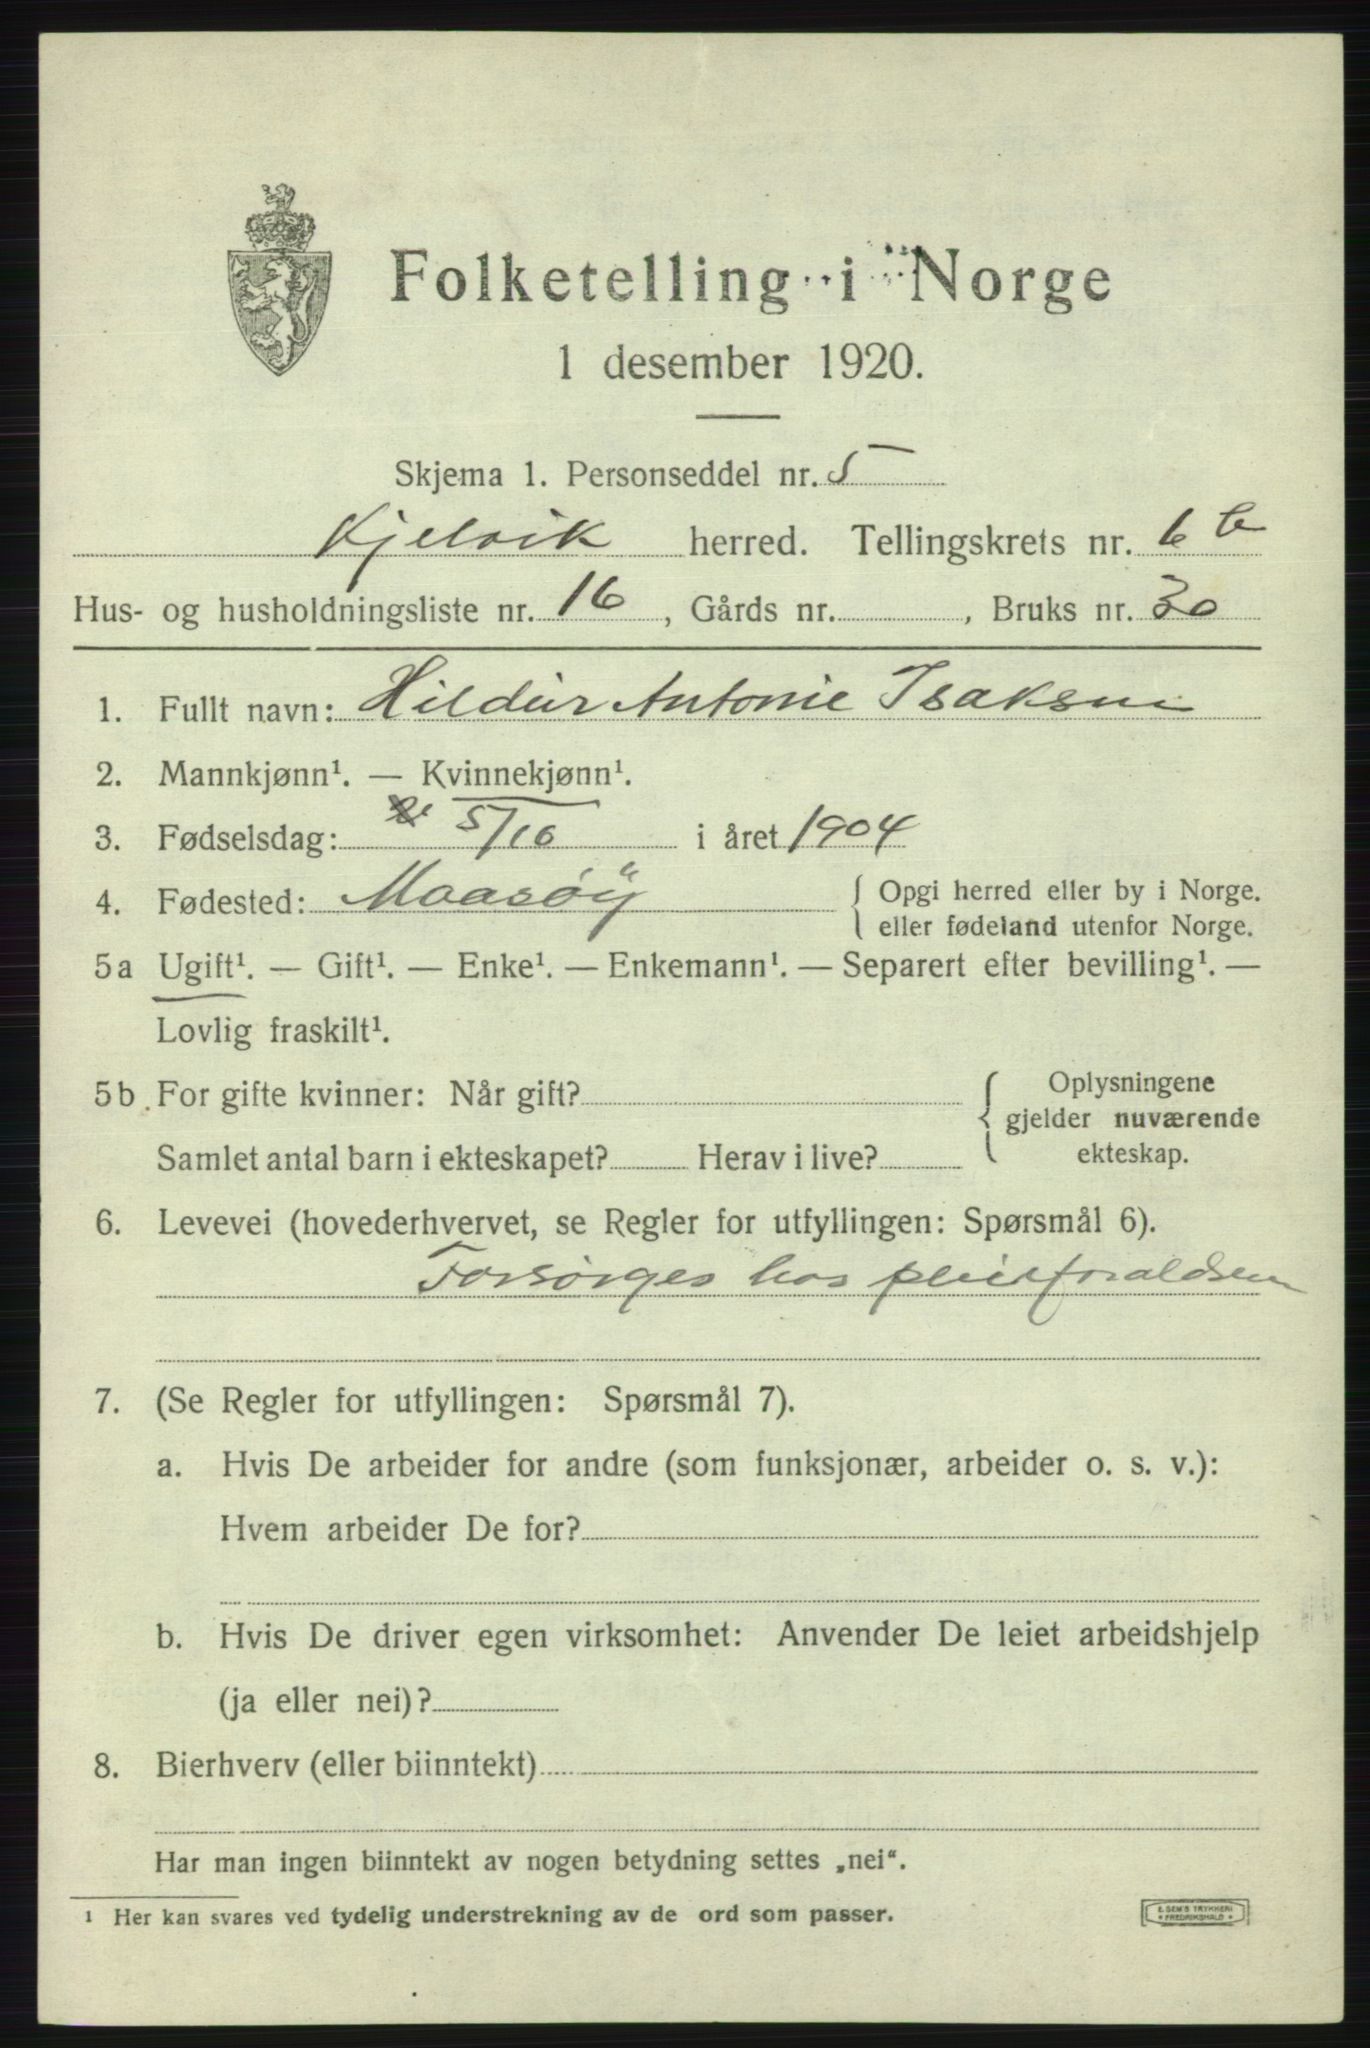 Folketelling i Norge
1 desember 1920.
Skjema 1. Personseddel nr. 5
Kjelvik herred. Tellingskrets nr. 6 b
Hus- og husholdningsliste nr. 16, Gårds nr. , Bruks nr. 30
1. Fullt navn: Hildur Antonie Isaksen
2. Mannkjønn¹. — Kvinnekjønn¹.
3. Fødselsdag: 5/10 i året 1904
4. Fødested: Maasöy { Opgi herred eller by i Norge.
eller fødeland utenfor Norge.
5a Ugift¹. — Gift¹. — Enke¹. — Enkemann¹. — Separert efter bevilling¹. —
Lovlig fraskilt¹.
5b For gifte kvinner: Når gift? { Oplysningene
gjelder nuværende
Samlet antal barn i ekteskapet? Herav i live? ekteskap.
6. Levevei (hovederhvervet, se Regler for utfyllingen: Spørsmål 6).
Forsørges hos pleieforældrene
7. (Se Regler for utfyllingen: Spørsmål 7).
a. Hvis De arbeider for andre (som funksjonær, arbeider o. s. v.):
Hvem arbeider De for?
b. Hvis De driver egen virksomhet: Anvender De leiet arbeidshjelp
(ja eller nei)?
8. Bierhverv (eller biinntekt)
Har man ingen biinntekt av nogen betydning settes „nei“.
¹ Her kan svares ved tydelig understrekning av de ord som passer.
E. SEM'S TRYKKERI
• FREDRIKSHALD •